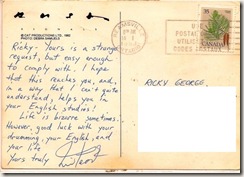 M-CAT PRODUCTIONS LTD. 1983
PHOTO: DEBRA SAMUELS
Ricky - Yours is a strange
request, but easy enough
to comply with. I hope
that this reaches you, and,
in a way that I can't quite
understand, helps you in
your English studies!
Life is bizarre sometimes...
However, good luck with your
drumming, your English, and
your life
Yours truly
RICKY GEORGE
35
CANADA
POSTAL
UTILISEZ
CODES